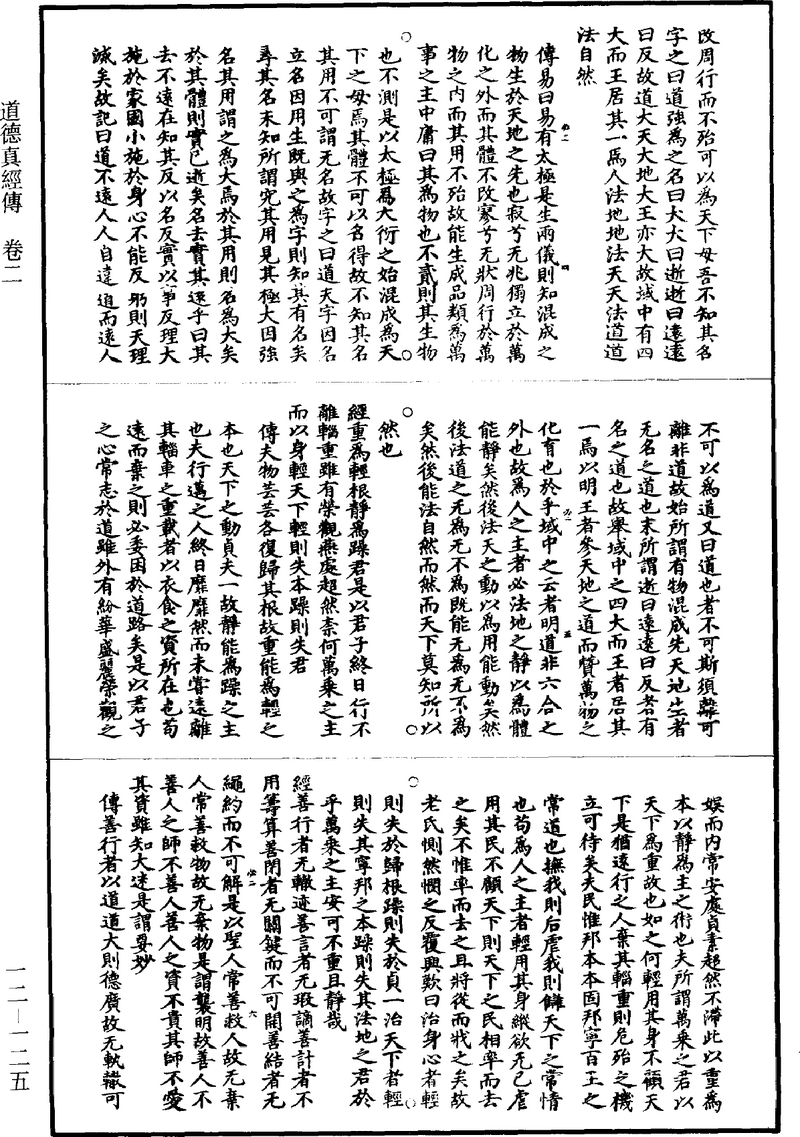 改周行而不殆可以為天下母吾不知其名
字之曰道強為之名曰大大曰逝逝曰遠遠
曰反故道大天大地大王亦大故域中有四
大而王居其一焉人法地地法天天法道道
法自然
傳易曰易有太極是生兩儀則知混成之
物生於天地之先也寂兮无兆獨立於萬
化之外而其體不改寥兮无狀周行於萬
物之內而其用不殆故能生成品類為萬
事之主中庸曰其為物也不貳則其生物
也不測是以太極為大衍之始混成為天
下之母焉其體不可以名得故不知其名
其用不可謂无名故字之曰道夫字因名
立名因用生既與之為字則知其有名矣
尋其名未知所謂究其用見其極大因強
名其用謂之為大焉於其用則名為大矣
於其體則實已逝矣名去實其遠乎曰其
去不遠在知其反以名反實以事反理大
施於家國小施於身心不能反躬則天理
滅矣故記曰道不遠人人自違道而遠人
不可以為道又曰道也者不可斯須離可
離非道故始所謂有物混成先天地生者
无名之道也末所謂逝曰遠遠曰反者有
名之道也故舉域中之四大而王者居其
一焉以明王者參天地之道而贊萬物之
化育也於乎域中之云者明道非六合之
外也故為人之主者必法地之靜以為體
能靜矣然後法天之動以為用能動矣然
後法道之无為无不為既能无為无不為
矣然後能法自然而然而天下莫知所以
然也
經重為輕根靜為躁君是以君子終日行不
離輜重雖有榮觀燕處超然柰何萬乘之主
而以身輕天下輕則失本躁則失君
傳夫物芸芸各復歸其根故重能為輕之
本也天下之動貞夫一故靜能為躁之主
也夫行邁之人終日靡靡然而未嘗遠離
其輜車之重載者以衣食之資所在也苟
遠而棄之則必委困於道路矣是以君子
之心常志於道雖外有紛華盛麗榮觀之
娛而內常安處貞素超然不滯此以重為
本以靜為主之術也夫所謂萬乘之君以
天下為重故也如之何輕用其身不顧天
下是猶遠行之人棄其輜重則危殆之機
立可待矣夫民惟邦本本固邦寧百王之
常道也撫我則后虐我則讎天下之常情
也苟為人之主者輕用其身縱欲无已虐
用其民不顧天下則天下之民相率而去
之矣不惟率而去之且將從而戕之矣故
老氏惻然憫之反覆興歎曰治身心者輕
則失於歸根躁則失於貞一治天下者輕
則失其寧邦之本躁則失其法地之君於
乎萬乘之主安可不重且靜哉
經善行者无轍迹善言者无瑕謫善計者不
用籌算善閉者无關鍵而不可開善結者无
繩約而不可解是以聖人常善救人故无棄
人常善救物故无棄物是謂襲明故善人不
善人之師不善人善人之資不貴其師不愛
其資雖知大迷是謂要妙
傳善行者以道道大則德廣故无軌轍可
道德真經傳 卷二
一二—一二五